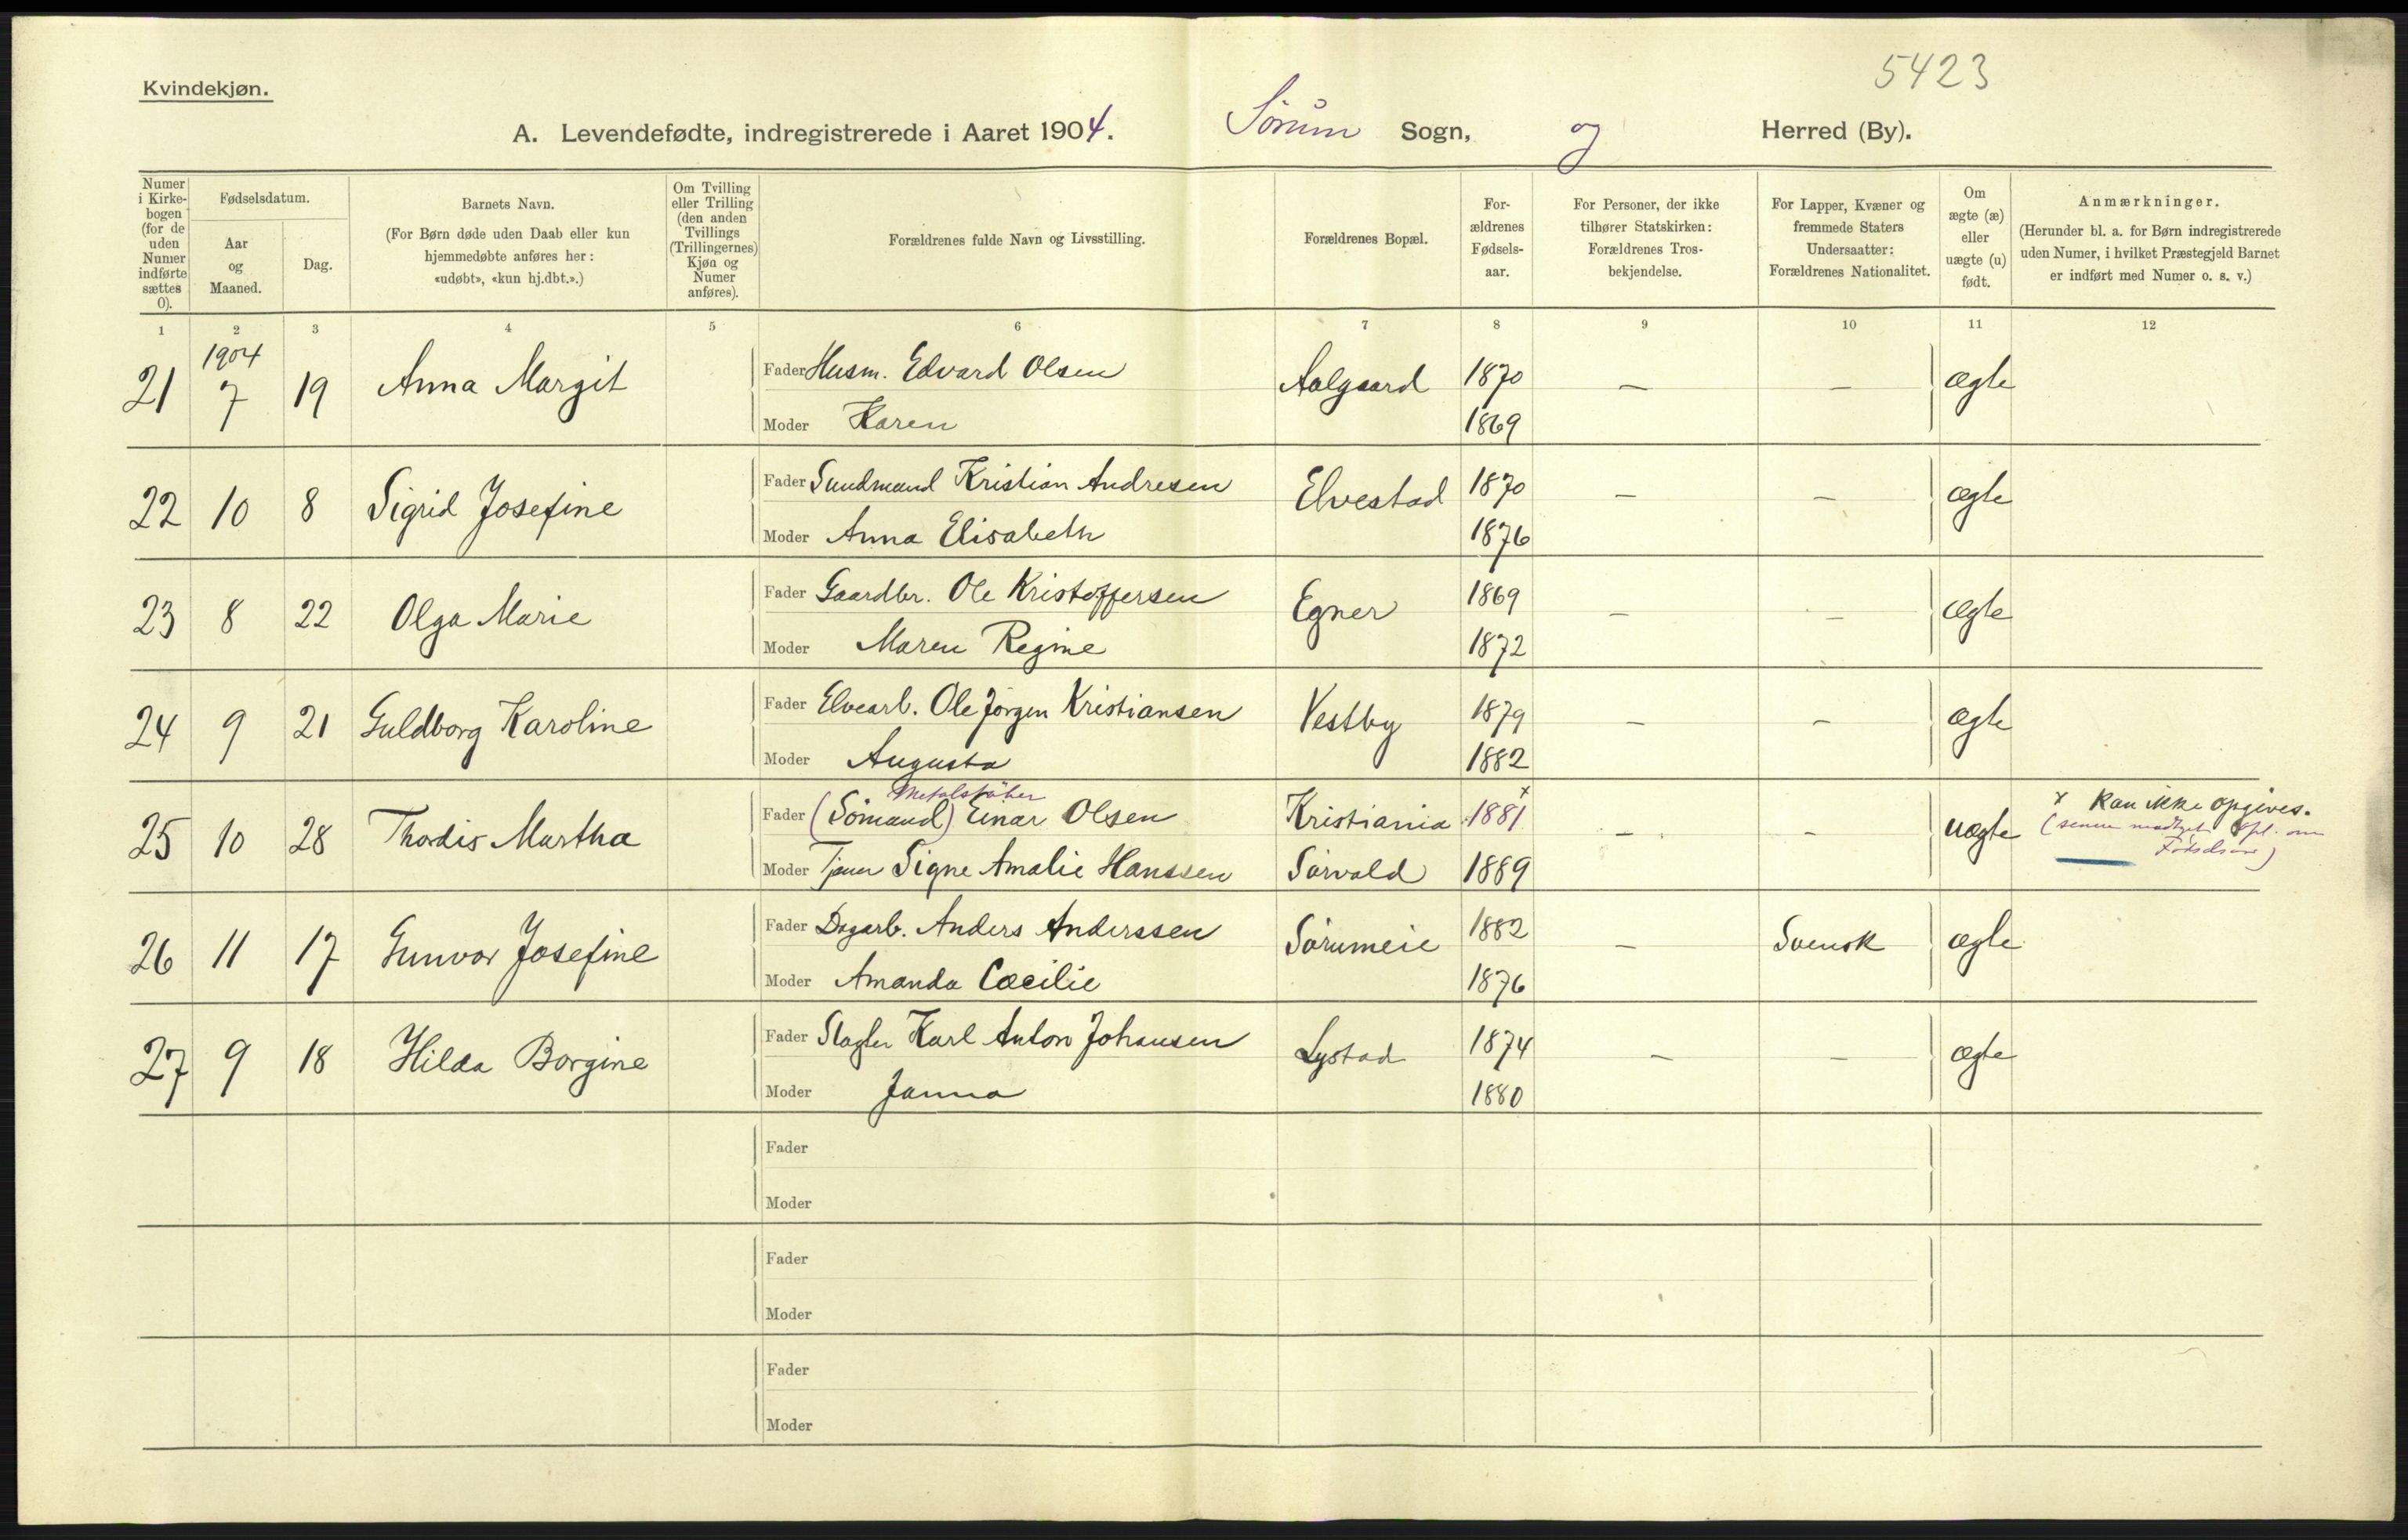 5423
Kvindekjøn.
A. Levendefødte, indregistrerede i Aaret 1904. Sørum Sogn, og Herred (By).
Numer i Kirkebogen (for de uden Numer indførte sættes 0).
Fødselsdatum.
Aar og Maaned.
Dag.
Barnets Navn.
(For Børn døde uden Daab eller kun hjemmedøbte anføres her: «udøbt», «kun hj.dbt.».)
Om Tvilling eller Trilling (den anden Tvillings (Trillingernes) Kjøn og Numer anføres).
Forældrenes fulde Navn og Livsstilling.
Forældrenes Bopæl.
Forældrenes Fødselsaar.
For Personer, der ikke tilhører Statskirken: Forældrenes Trosbekjendelse.
For Lapper, Kvæner og fremmede Staters Undersaatter: Forældrenes Nationalitet.
Om ægte (æ) eller uægte (u) født.
Anmærkninger.
(Herunder bl. a. for Børn indregistrerede uden Numer, i hvilket Præstegjeld Barnet er indført med Numer o. s. v.)
1 2 3 4 5 6 7 8 9 10 11 12
1904
21 7 19 Anna Margit Fader Husm. Edvard Olsen Aalgaard 1870 – – ægte
Moder Karen 1869
22 10 8 Sigrid Josefine Fader Sundmand Kristian Andresen Elvestad 1870 – – ægte
Moder Anna Elisabeth 1876
23 8 22 Olga Marie Fader Gaardbr. Ole Kristoffersen Egner 1869 – – ægte
Moder Maren Regine 1872
24 9 21 Guldborg Karoline Fader Elvearb. Ole Jørgen Kristiansen Vestby 1879 – – ægte
Moder Augusta 1882
Metalstøber
25 10 28 Thordis Martha Fader (Sømand) Einar Olsen Kristiania 1881 x – – uægte x Kan ikke opgives.
(senere modtaget Opl. om
Fødselsaar)
Moder Tjener Signe Amalie Hanssen Sørvald 1889
26 11 17 Gunvor Josefine Fader Dagarb. Anders Anderssen Sørumeie 1882 – Svensk ægte
Moder Amanda Cæcilie 1876
27 9 18 Hilda Borgine Fader Slagter Karl Anton Johansen Lystad 1874 – – ægte
Moder Janna 1880
Fader
Moder
Fader
Moder
Fader
Moder